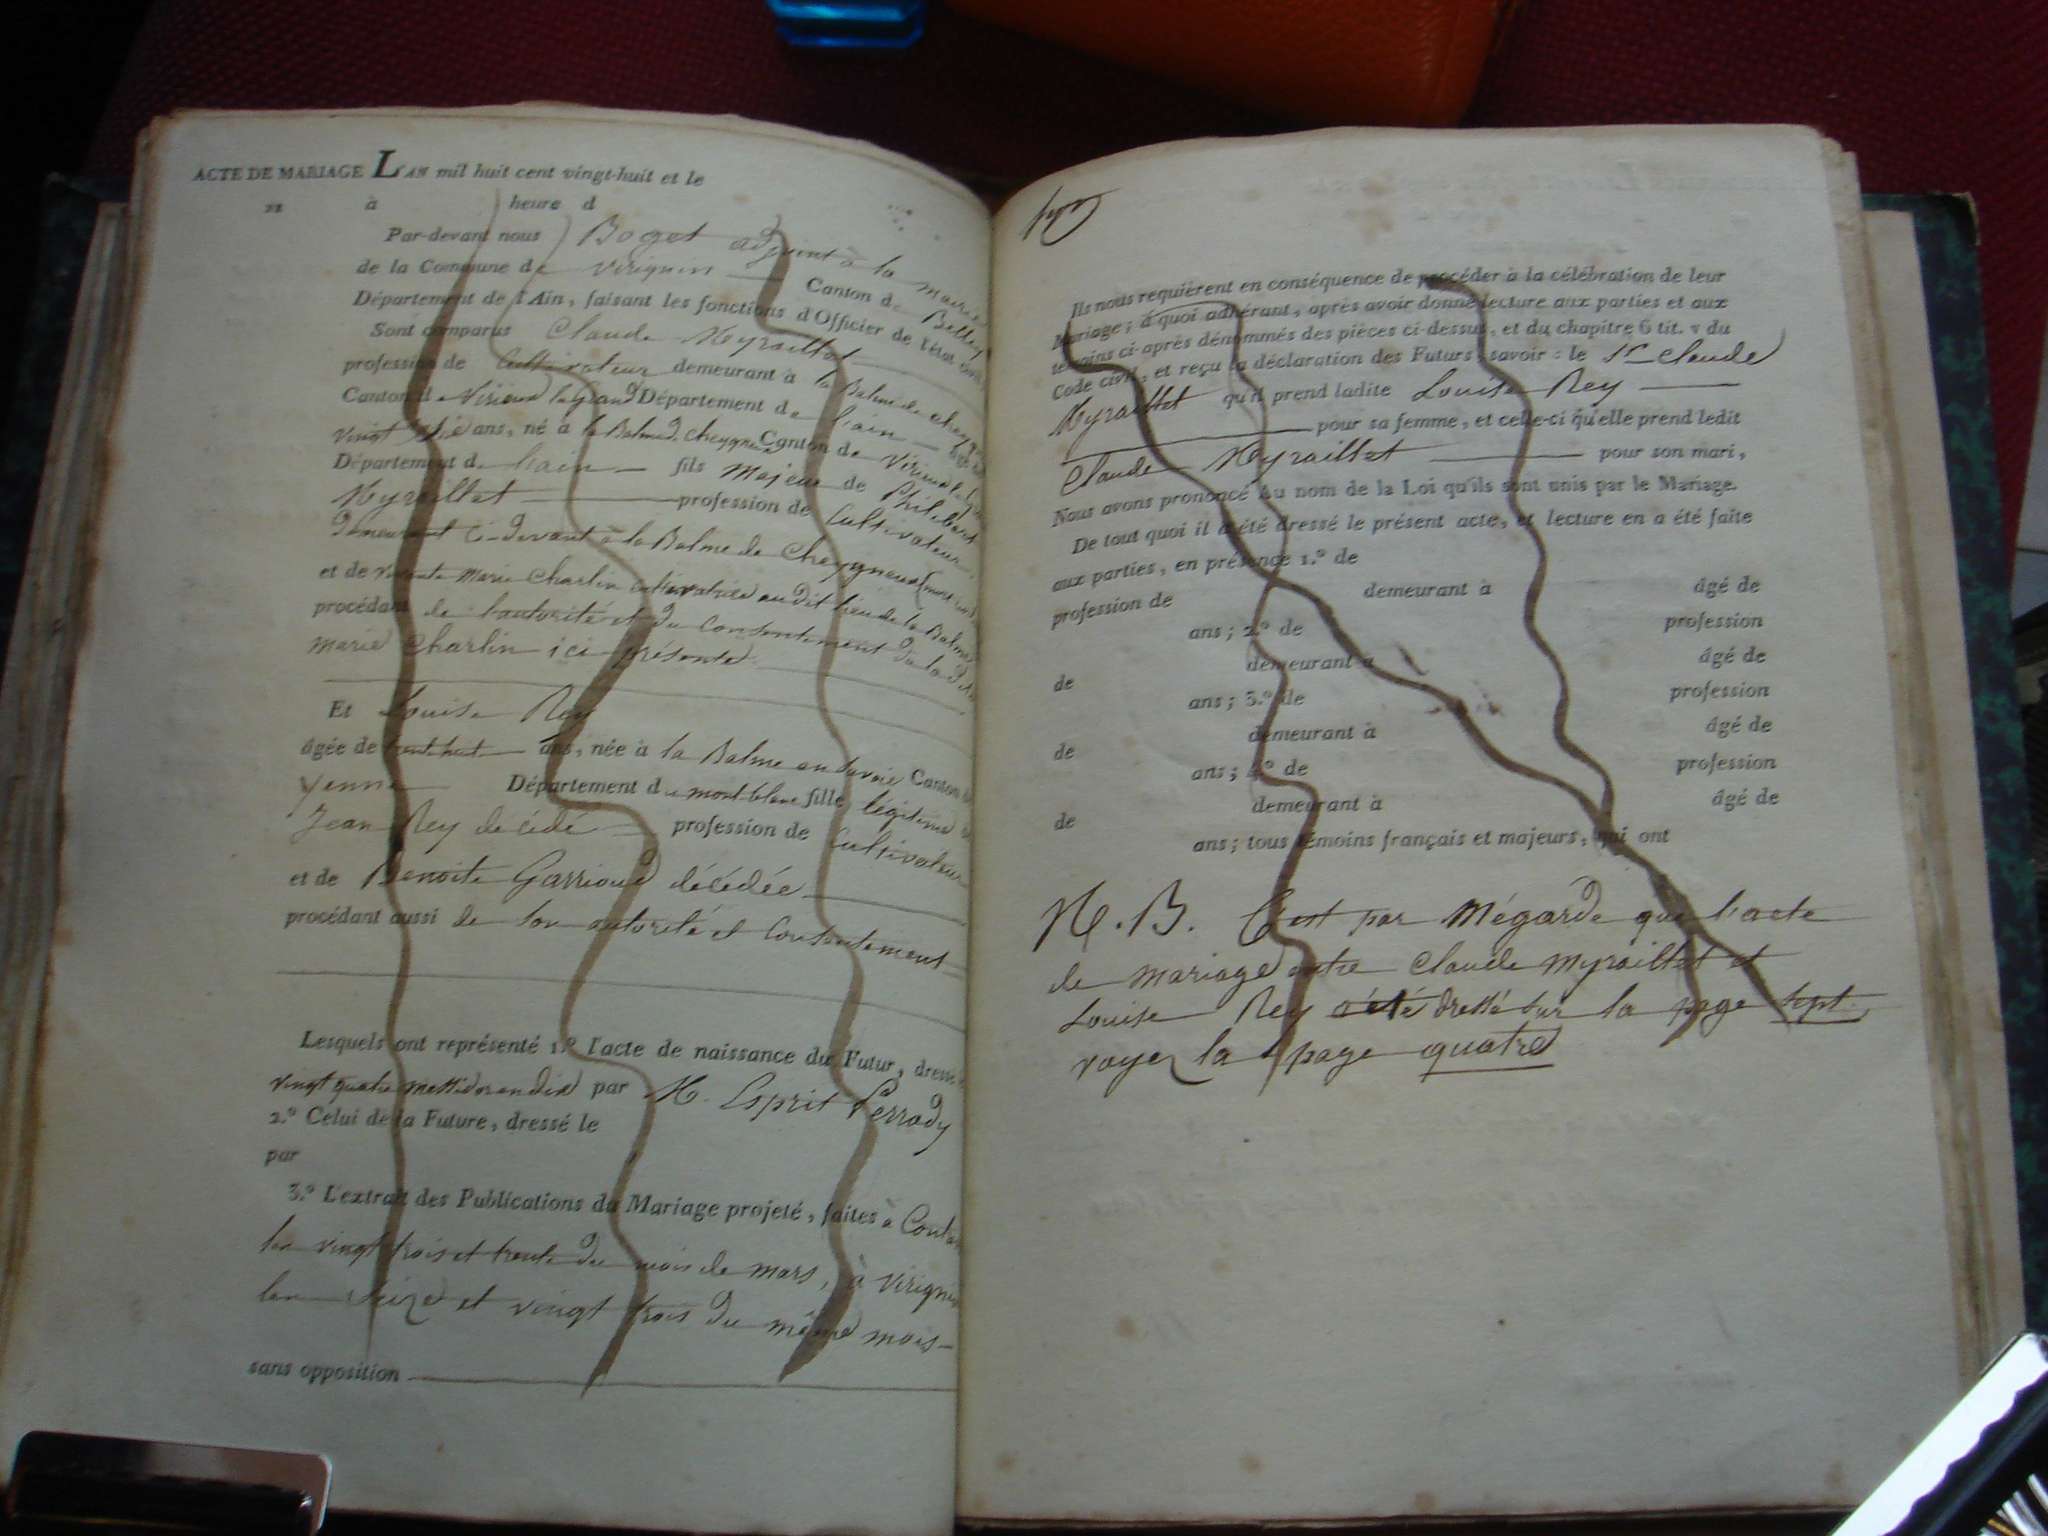 ACTE DE MARIAGE L'AN mil huit cent vingt-huit et le
à heure d
Par-devant nous Boget adjoint à la mairie
de la Commune de Virignin Canton de Belley
Département de l'Ain, faisant les fonctions d'Officier de l'état civil
Sont comparus Claude Myraillet
profession de Cultivateur demeurant à la Balme de Cheygn
Canton de Virieu le Grand Département de l'ain âgé de
vingt ans, né à la Balme de Cheygneu Canton de Virieu le
Département de l'ain fils majeur de Philibert
Myraillet profession de Cultivateur
Demeurant Ci-devant à la Balme de Cheygneux
et de Marie Charlin cultivatrice au dit lieu de la Balme
procédant de l'autorité et du Consentement de la dite
Marie Charlin ici présente
Et Louise Rey
âgée de trent huit ans, née à la Balme en Savoie Canton d
Yenne Département de mont-blanc fille légitime de
Jean Rey décédé profession de Cultivateur
et de Benoite Garrioud décédée
procédant aussi de son autorité et Consentement
Lesquels ont représenté 1.º l'acte de naissance du Futur, dressé le
vingt quatre messidor an dix par M. Esprit Perrady
2.º Celui de la Future, dressé le
par
3.º L'extrait des Publications du Mariage projeté, faites à Conta
les vingt trois et trente du mois de mars, à Virignin
les seize et vingt trois du même mois
sans opposition
Ils nous requièrent en conséquence de procéder à la célébration de leur
Mariage; à quoi adhérant, après avoir donné lecture aux parties et aux
témoins ci-après dénommés des pièces ci-dessus, et du chapitre 6 tit. v du
Code civil, et reçu la déclaration des Futurs, savoir: le Sr Claude
Myraillet qu'il prend ladite Louise Rey
pour sa femme, et celle-ci qu'elle prend ledit
Claude Myraillet pour son mari,
Nous avons prononcé Au nom de la Loi qu'ils sont unis par le Mariage.
De tout quoi il a été dressé le présent acte, et lecture en a été faite
aux parties, en présence 1.º de
profession de demeurant à âgé de
ans; 2.º de profession
de demeurant à âgé de
ans; 3.º de profession
de demeurant à âgé de
ans; 4.º de profession
de demeurant à âgé de
ans; tous témoins français et majeurs, qui ont
N.B. C'est par Mégarde que l'acte
de mariage entre Claude Myraillet et
Louise Rey a été dressé sur la page sept
voyez la page quatre